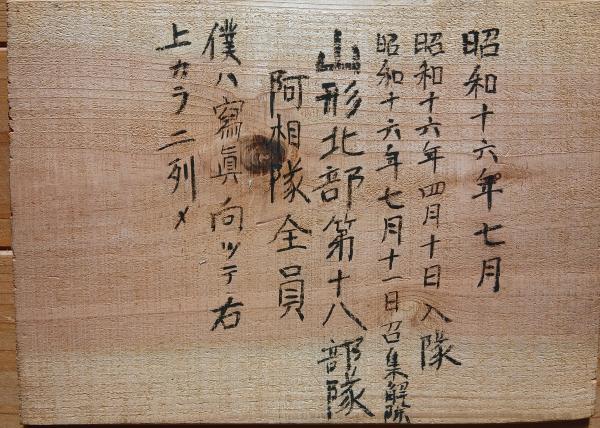 昭和十六年七月
昭和十六年四月十日入隊
昭和十六年七月十一日召集解除
山形北部第十八部隊
阿相隊全員
僕ハ寫眞向ツテ右
上カラ二列メ